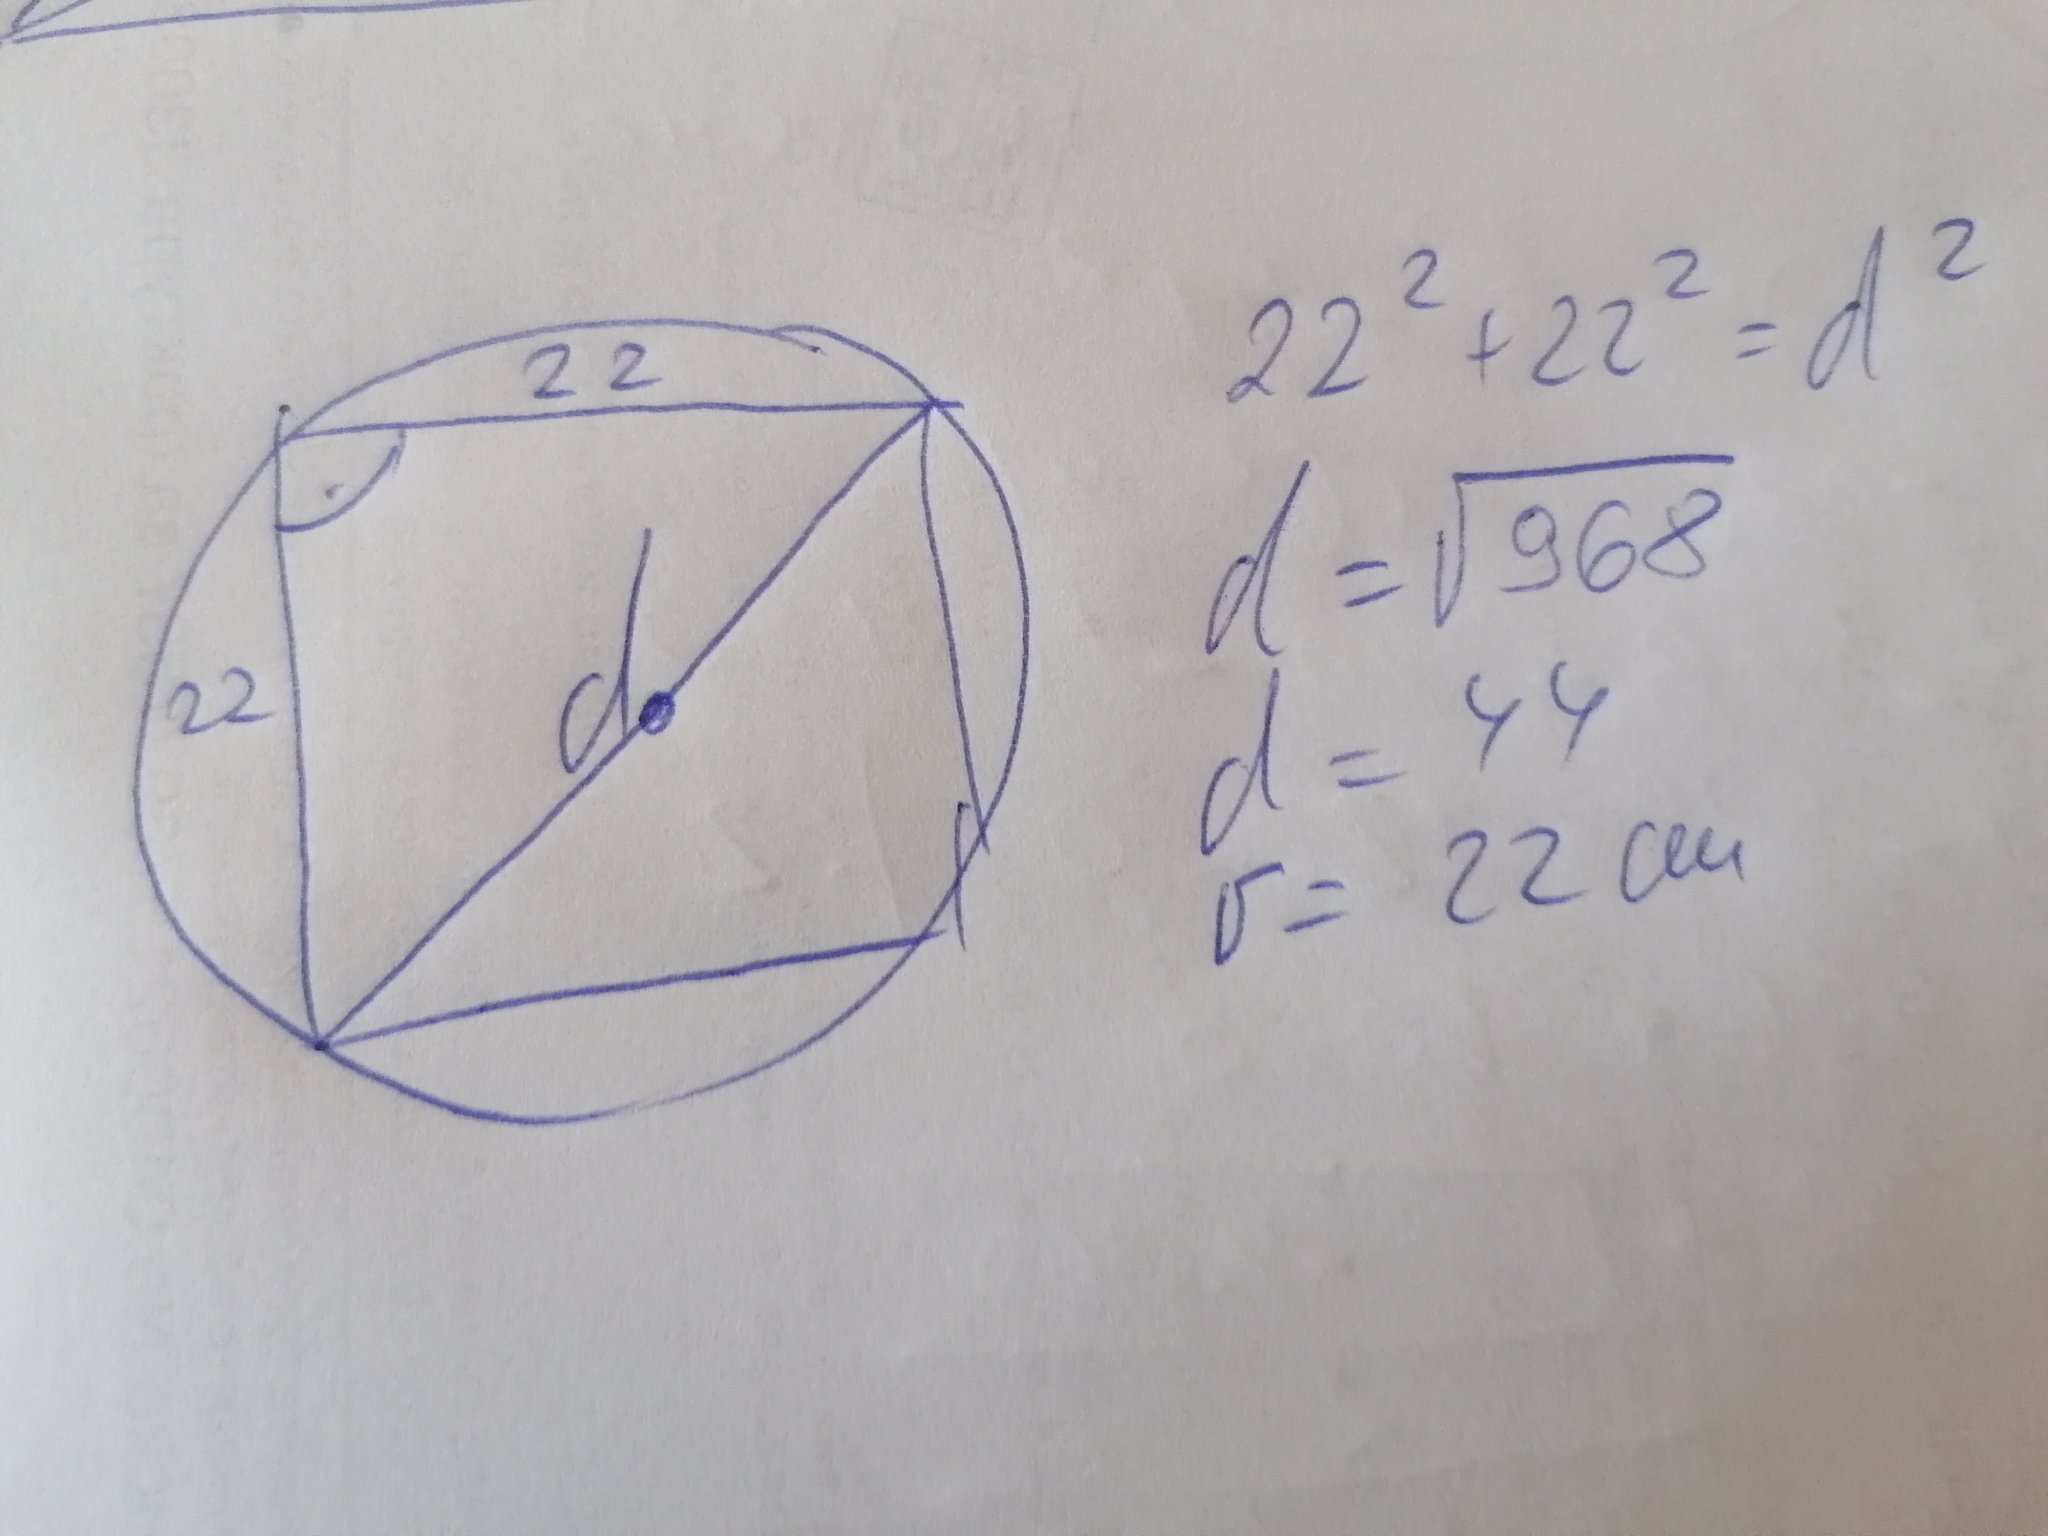 22
22
d
22² + 22² = d²
d = √968
d = 44
r = 22 cm